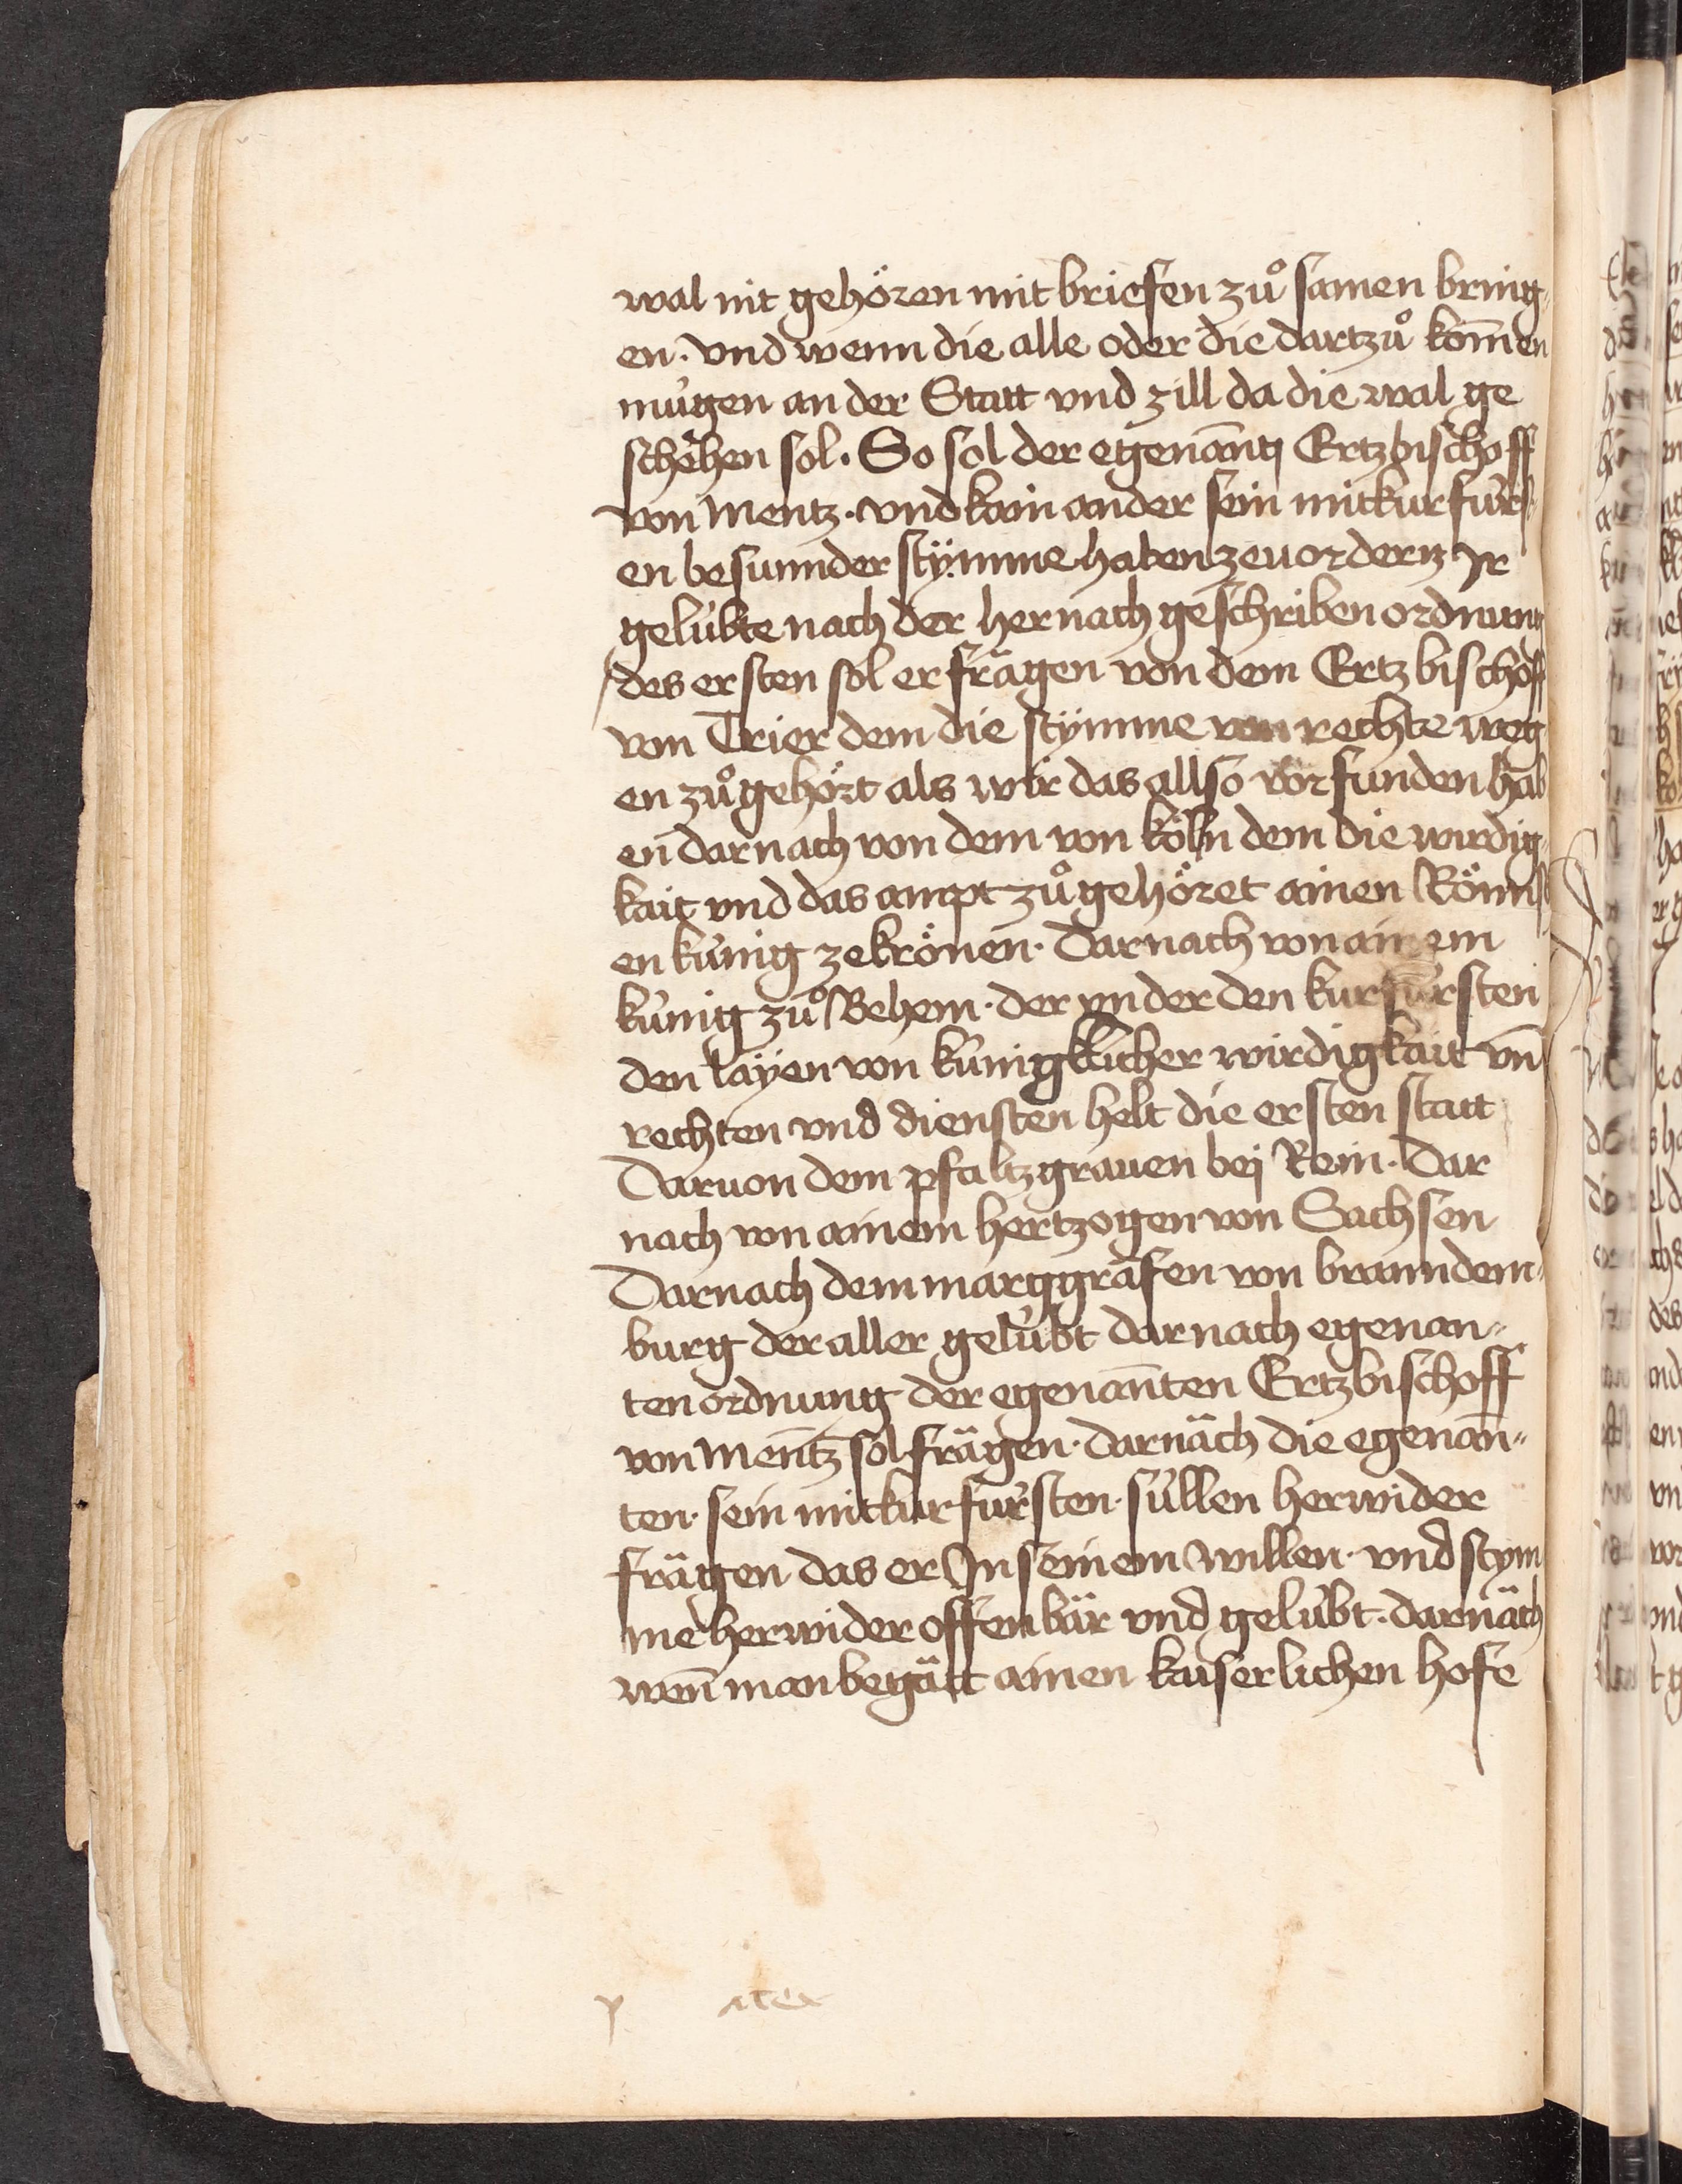 wal nit gehören mit briefen zuͦ samen bring¬
en · vnd wenn die alle oder die dartzuͦ kom̄en
mügen an der Statt vnd zill da die wal ge
schehen sol · So sol der egenan̄t Ertzbischoff
von Mentz · vnd kain ander sein mitkurfürst¬
en besunnder stÿmme haben zeuordern Ir
gelübte nach der hernach geschriben ordnung
des ersten sol er frägen von dem Ertzbischoff
von Trier dem die stÿmme von rechte weg
en zuͦgehört als wir das allso vor funden hab
en darnach von dem von Köln dem die wirdig
kait vnd das ampt zuͦgehöret ainen Römisch
en künig zekrönen · Darnach von ainem
künig zuͦ Behem · der vnder den kurfürsten
den laÿen von künigklicher wirdigkait vn̄
rechten vnd diensten helt die ersten statt
Daruon dem pfaltzgrauen bej Rein · Dar
nach von ainem hertzogen von Sachsen
Darnach dem marggräfen von branndem¬
burg der aller gelübt darnach egenan¬
ten ordnung der egenan̄ten Ertzbischoff
von Mentz sol frägen · darnäch die egenan̄¬
ten · sein mitkurfürsten · süllen herwider
frägen das er In seinem willen · vnd stym
me herwider offenbär vnd gelübt · darnäch
wen̄ man begätt ainen kaiserlichen hofe